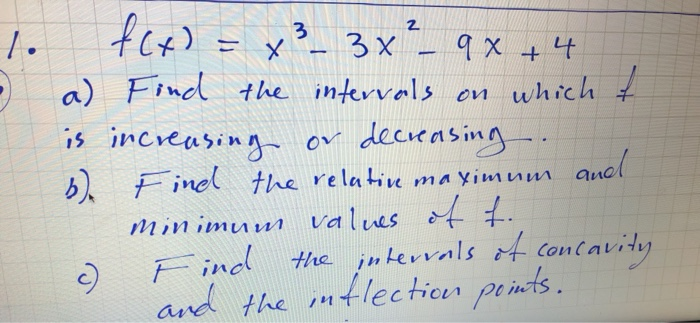 1. f(x) = x³ - 3x² - 9x + 4
a) Find the intervals on which f
is increasing or decreasing.
b) Find the relative maximum and
minimum values of f.
c) Find the intervals of concavity
and the inflection points.